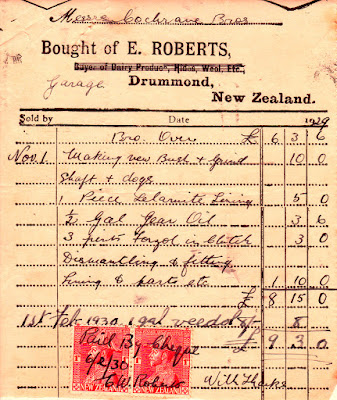 Messrs Cochrane Bros
Bought of E. ROBERTS,
Buyer of Dairy Produce, Hides, Wool, Etc.,
Garage Drummond,
New Zealand.
Sold by Date 1929
Bro Over £ 6 3 6
Nov. 1 Making new Bush & Grind 10 0
Shaft & dogs
1 Piece Lining 5 0
½ Gal Gear Oil 3 6
3 in Clutch 3 0
Dismantling & fitting
Lining & parts etc 1 10 0
£ 8 15 0
1st Feb 1930 1 gal
£ 9 3 0
Paid By Cheque
6/2/30
E. W. Roberts
With Thanks
NEW ZEALAND NEW ZEALAND